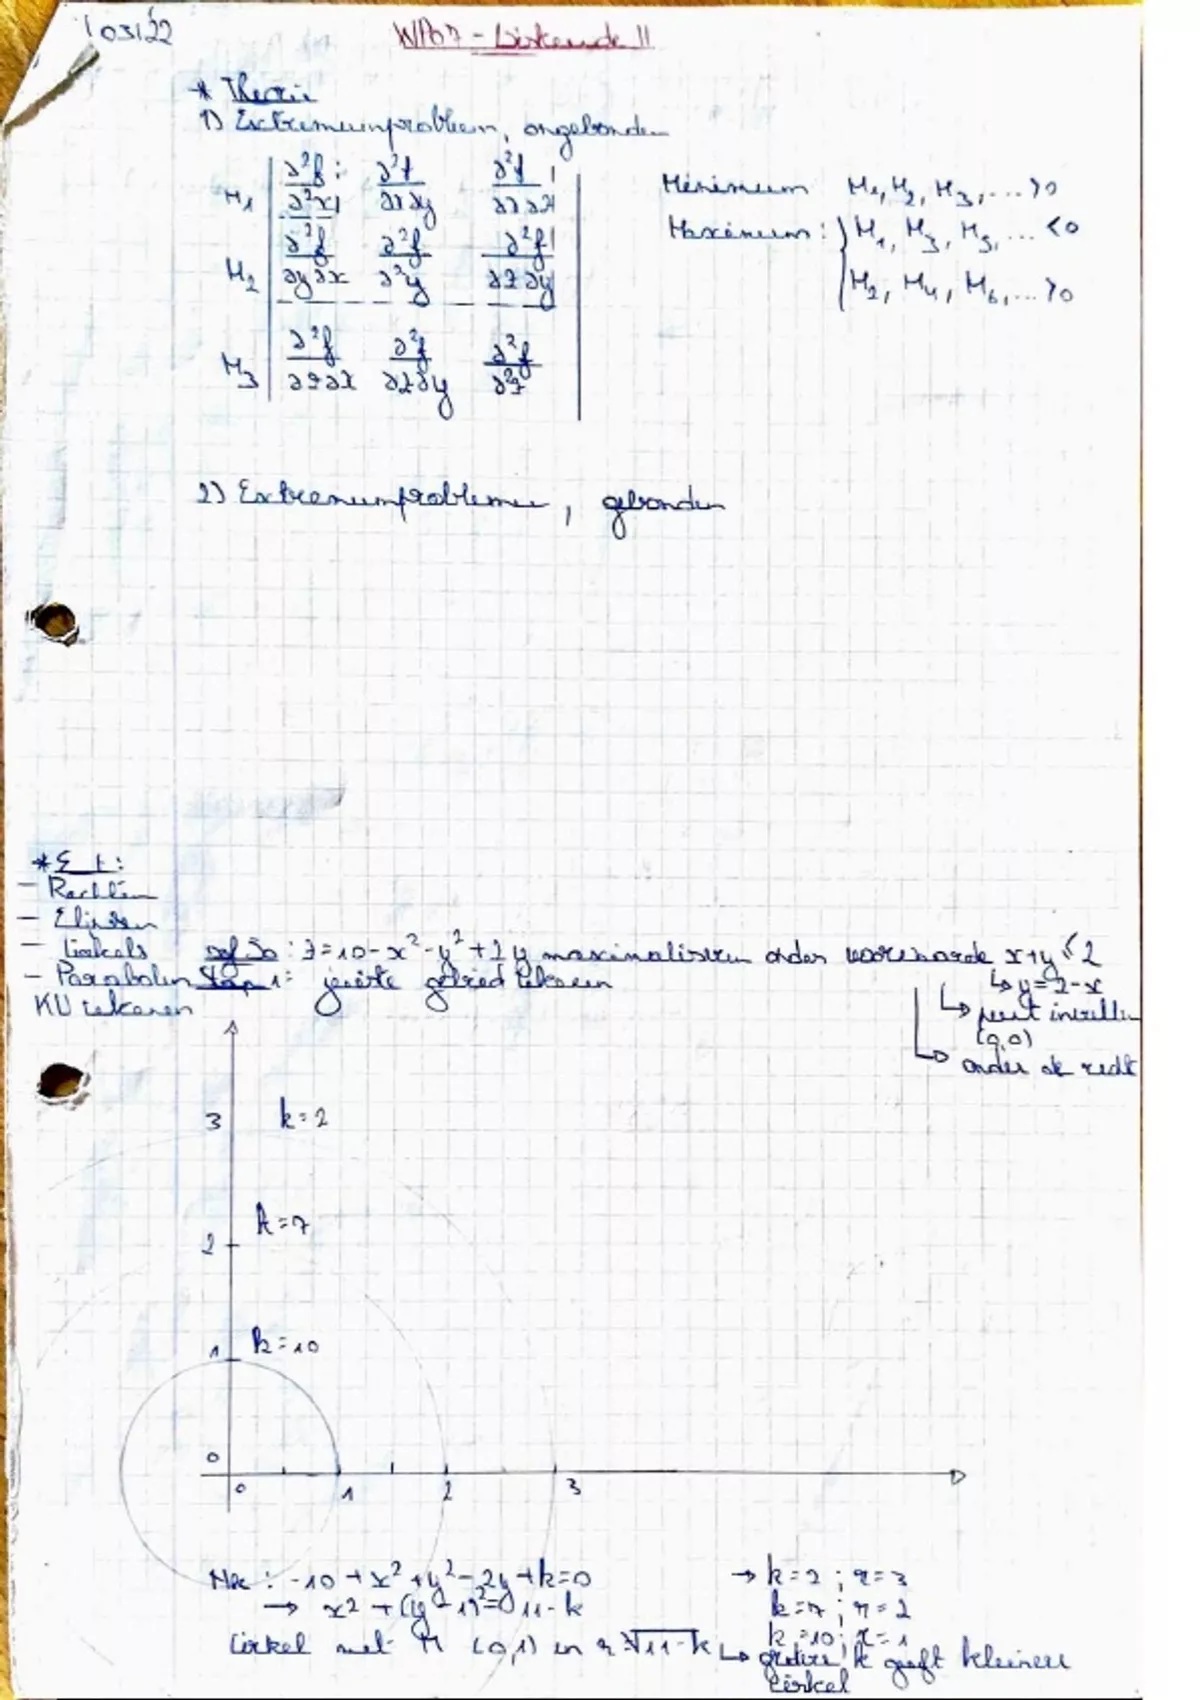 03/22
WPO7 - Wiskunde II
* Theorie
1) Extremumprobleem, ongebonden
M₁ ∂²f/∂²x ∂²f/∂x∂y ∂²f/∂x∂z
M₂ ∂²f/∂y∂x ∂²f/∂²y ∂²f/∂z∂y
M₃ ∂²f/∂z∂x ∂²f/∂z∂y ∂²f/∂²z
Minimum M₁, M₂, M₃, ... > 0
Maximum: M₁, M₃, M₅, ... < 0
M₂, M₄, M₆, ... > 0
2) Extremumproblemen, gebonden
- Rechten
- Elipsen
- Cirkels
- Parabolen
KU tekenen
z = 10 - x² - y² + 2y maximaliseren onder voorwaarde x+y ≤ 2
↳ y = 2-x
Stap 1: gebied tekenen
↳ punt invullen
(0,0)
↳ onder de recht
3 k=2
2 k=7
1 k=10
0
0 1 2 3
: -10 + x² + y² - 2y + k = 0
→ x² + (y-1)² = 11-k
Cirkel met M (0,1) en r √11-k
→ k=2 ; r=3
k=7 ; r=2
k=10 ; r=1
↳ grotere k geeft kleinere
cirkel